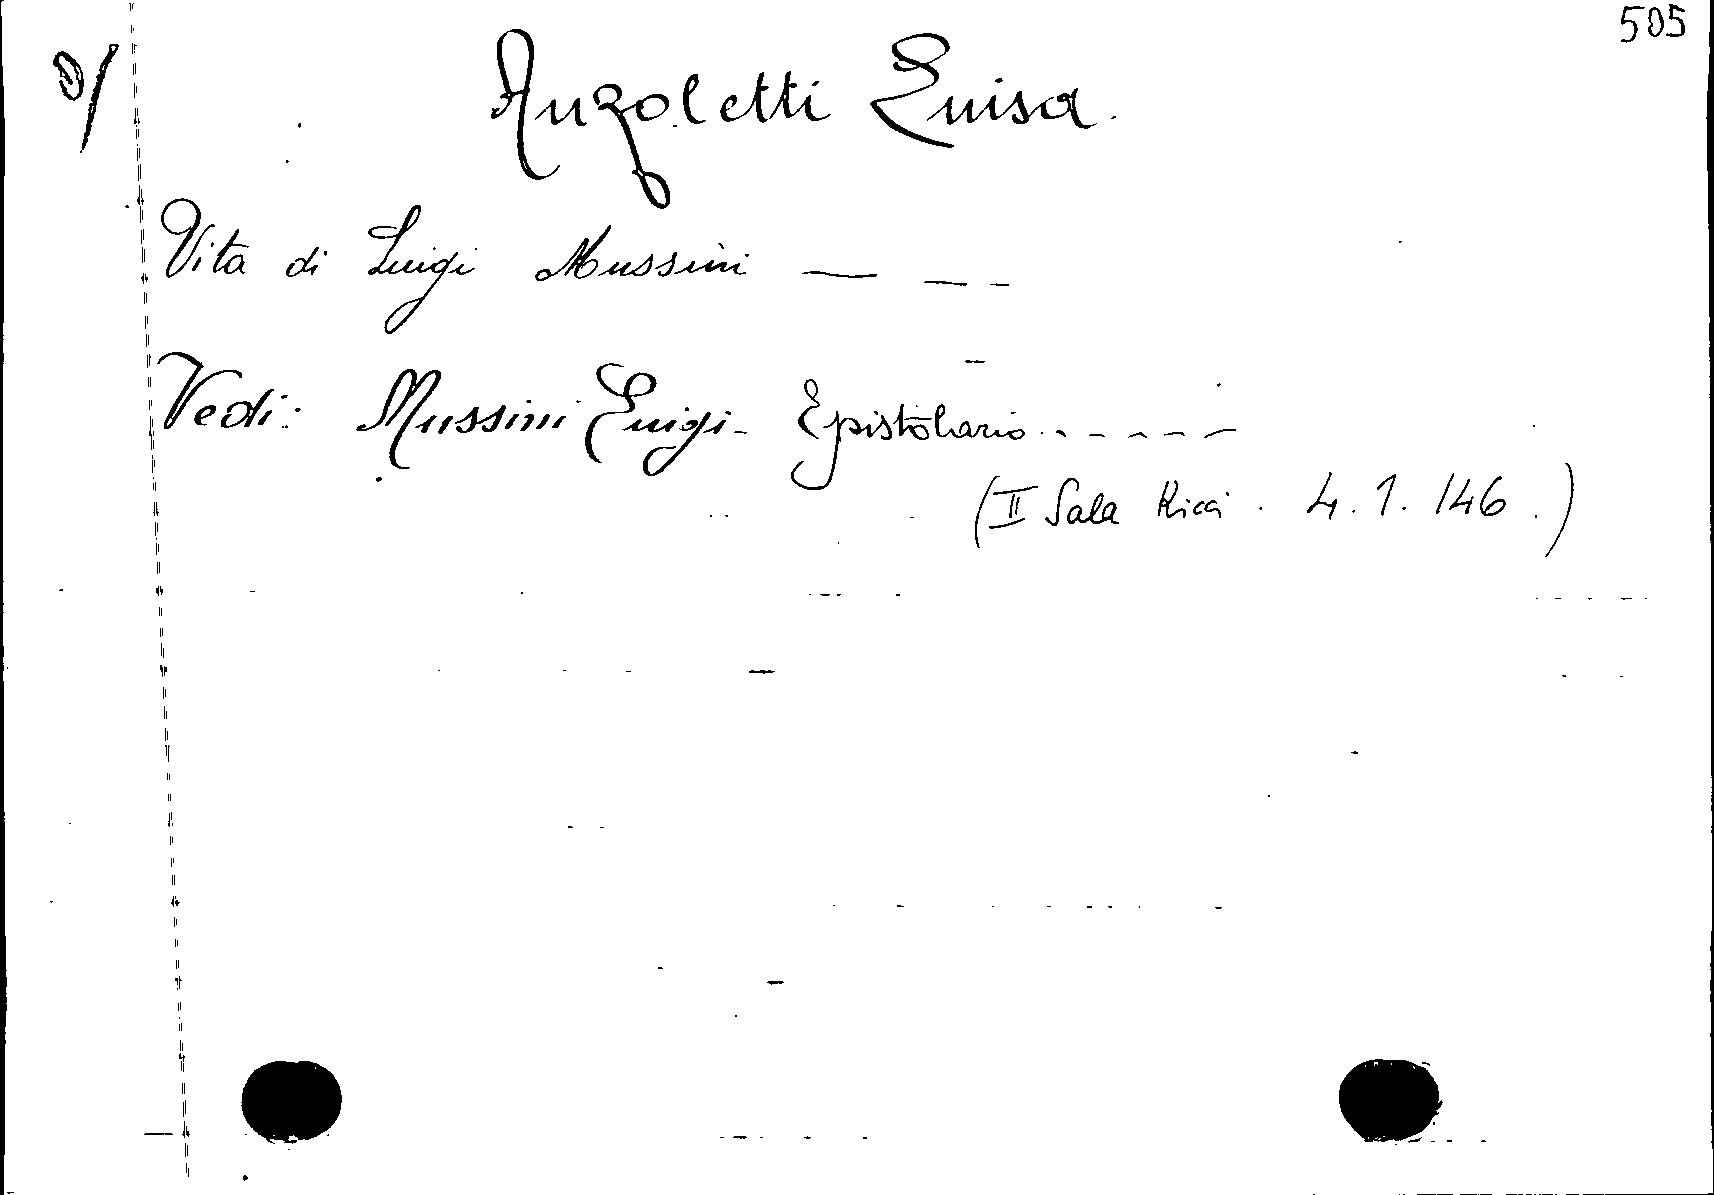 505
Anzoletti Luisa.
Vita di Luigi Mussini — — -
Vedi: Mussini Luigi - Epistolario - - - - -
(II Sala Ricci . 4.1.146.)